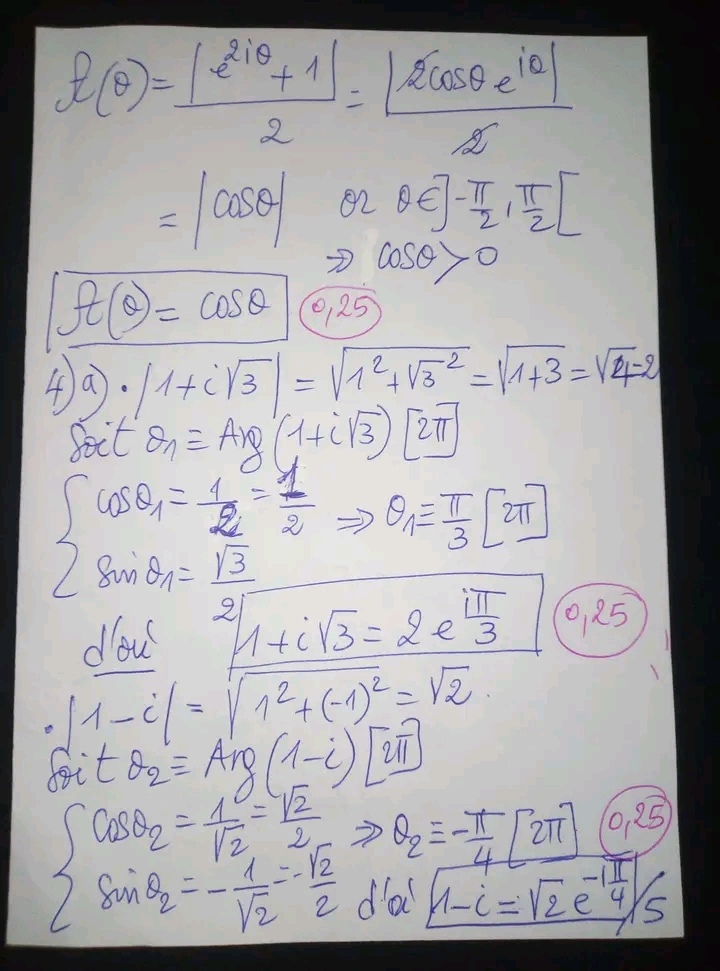 𝒜(θ) = |e^{2iθ} + 1| / 2 = |2cosθ e^{iθ}| / 2
= |cosθ| or θ ∈ ]-π/2, π/2[
⇒ cosθ > 0
𝒜(θ) = cosθ 0,25
4) a) • |1+i√3| = √(1² + √3²) = √(1+3) = √4 = 2
Soit θ₁ ≡ Arg(1+i√3) [2π]
{ cosθ₁ = 1/2 = 1/2 ⇒ θ₁ ≡ π/3 [2π]
sinθ₁ = √3/2
d'où 1+i√3 = 2 e^{iπ/3} 0,25
• |1-i| = √(1² + (-1)²) = √2.
Soit θ₂ ≡ Arg(1-i) [2π]
{ cosθ₂ = 1/√2 = √2/2 ⇒ θ₂ ≡ -π/4 [2π] 0,25
sinθ₂ = -1/√2 = -√2/2 d'où 1-i = √2 e^{-iπ/4} /5